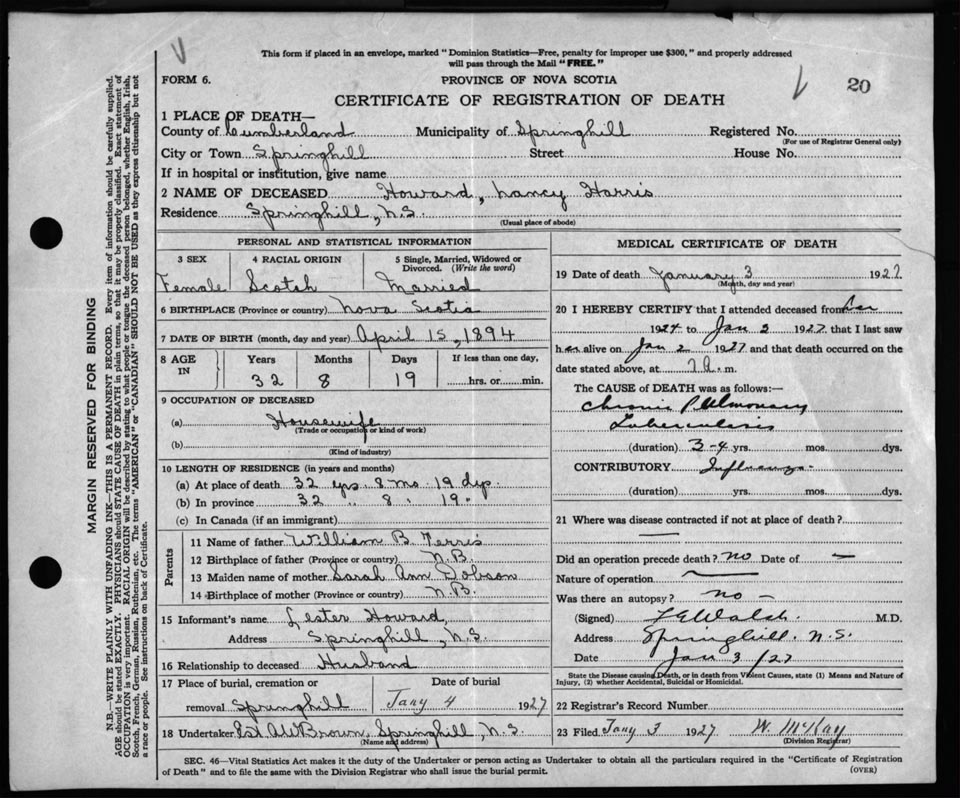 This form if placed in an envelope, marked "Dominion Statistics—Free, penalty for improper use $300," and properly addressed
will pass through the Mail "FREE."
FORM 6.
PROVINCE OF NOVA SCOTIA
20
CERTIFICATE OF REGISTRATION OF DEATH
1 PLACE OF DEATH—
County of Cumberland Municipality of Springhill Registered No.
(For use of Registrar General only)
City or Town Springhill Street House No.
If in hospital or institution, give name
2 NAME OF DECEASED Howard, Nancy Harris
Residence Springhill, N.S.
(Usual place of abode)
PERSONAL AND STATISTICAL INFORMATION
3 SEX 4 RACIAL ORIGIN 5 Single, Married, Widowed or
Divorced. (Write the word)
Female Scotch Married
6 BIRTHPLACE (Province or country) Nova Scotia
7 DATE OF BIRTH (month, day and year) April 15, 1894
8 AGE IN Years Months Days If less than one day,
32 8 19 hrs. or min.
9 OCCUPATION OF DECEASED
(a) Housewife
(Trade or occupation or kind of work)
(b)
(Kind of industry)
10 LENGTH OF RESIDENCE (in years and months)
(a) At place of death 32 yrs 8 mo 19 dys.
(b) In province 32 .. 8 . 19 .
(c) In Canada (if an immigrant)
Parents
11 Name of father William B.
12 Birthplace of father (Province or country) N.B.
13 Maiden name of mother Sarah Ann Dobson
14 Birthplace of mother (Province or country) N.B.
15 Informant's name Lester Howard,
Address Springhill, N.S.
16 Relationship to deceased Husband
17 Place of burial, cremation or Date of burial
removal Springhill Jany 4 1927
18 Undertaker Est. Brown, Springhill, N.S.
(Name and address)
MEDICAL CERTIFICATE OF DEATH
19 Date of death January 3 1927
(Month, day and year)
20 I HEREBY CERTIFY that I attended deceased from
1924 to Jan 2 1927 that I last saw
her alive on Jan 2 1927 and that death occurred on the
date stated above, at 7 a. m.
The CAUSE of DEATH was as follows:
Chronic Pulmonary
Tuberculosis
(duration) 3-4 yrs. mos. dys.
CONTRIBUTORY Influenza.
(duration) yrs. mos. dys.
21 Where was disease contracted if not at place of death?
—
Did an operation precede death? no Date of —
Nature of operation
Was there an autopsy? no —
(Signed) Walsh M.D.
Address Springhill. N.S.
Date Jan 3 /27
State the Disease causing Death, or in death from Violent Causes, state (1) Means and Nature of
Injury, (2) whether Accidental, Suicidal or Homicidal.
22 Registrar's Record Number
23 Filed Jany 3 1927 W. McKay
(Division Registrar)
SEC. 46—Vital Statistics Act makes it the duty of the Undertaker or person acting as Undertaker to obtain all the particulars required in the "Certificate of Registration
of Death" and to file the same with the Division Registrar who shall issue the burial permit.
(OVER)
MARGIN RESERVED FOR BINDING
N.B.—WRITE PLAINLY WITH UNFADING INK—THIS IS A PERMANENT RECORD. Every item of information should be carefully supplied.
AGE should be stated EXACTLY. PHYSICIANS should STATE CAUSE OF DEATH in plain terms, so that it may be properly classified. Exact statement of
OCCUPATION is very important. RACIAL ORIGIN will be described by stating to what people or tongue the deceased person belonged, whether English, Irish,
Scotch, French, German, Russian, Ruthenian, etc. The terms "AMERICAN" or "CANADIAN" SHOULD NOT BE USED as they express citizenship but not
a race or people. See instructions on back of Certificate.